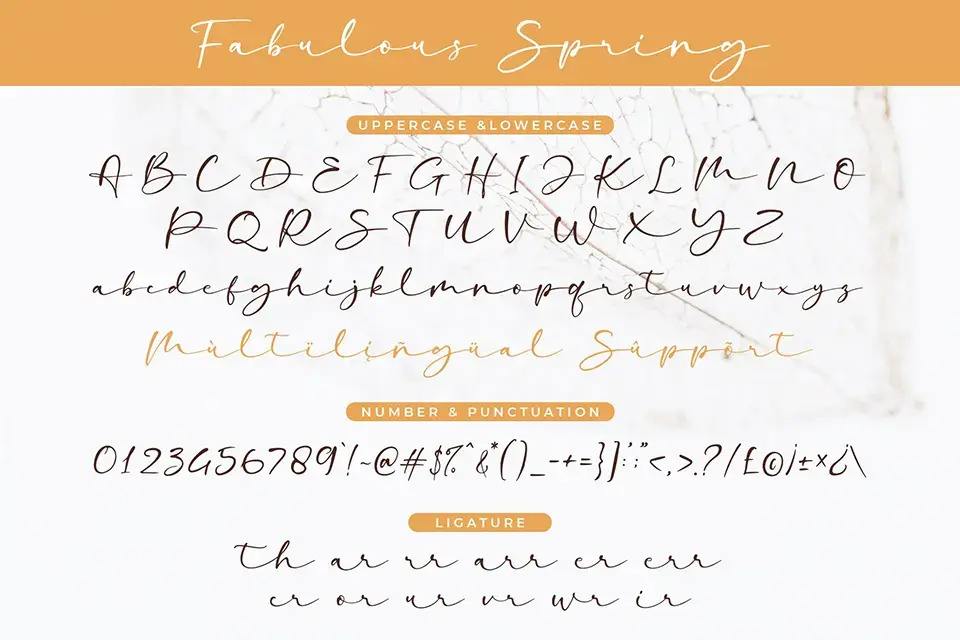 Fabulous Spring
UPPERCASE &LOWERCASE
A B C D E F G H I J K L M N O
P Q R S T U V W X Y Z
a b c d e f g h i j k l m n o p q r s t u v w x y z
Mùltïlįñgüal Sûppõrt
NUMBER & PUNCTUATION
0123456789`!~@#$%^&*()_-+=}]:;'"<,>.?/£©¡±×¿\
LIGATURE
Th ar rr arr er err
cr or ur vr wr ir